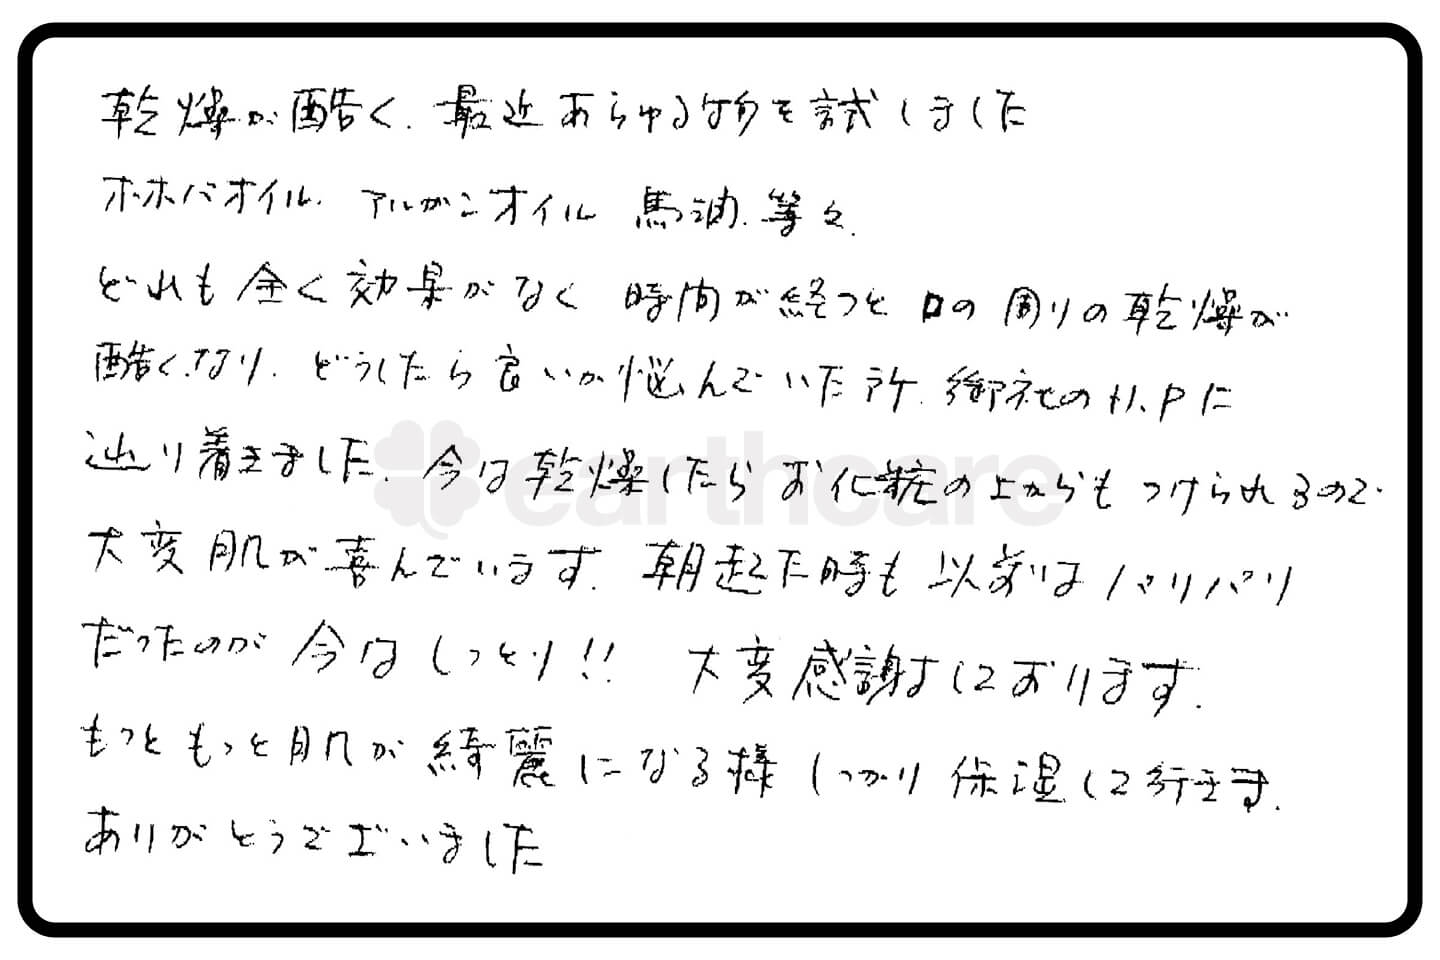 乾燥が酷く、最近あらゆる物を試しました
ホホバオイル、アルガンオイル 馬油、等々、
どれも全く効果がなく 時間が経つと 口の周りの乾燥が
酷くなり、どうしたら良いか悩んでいた所、御社のH.Pに
辿り着きました、今は乾燥したらお化粧の上からもつけられるので
大変肌が喜んでいます。朝起た時も以前はパリパリ
だったのが 今はしっとり!! 大変感謝しております。
もっともっと肌が綺麗になる様しっかり保湿して行きます。
ありがとうございました
earthcare